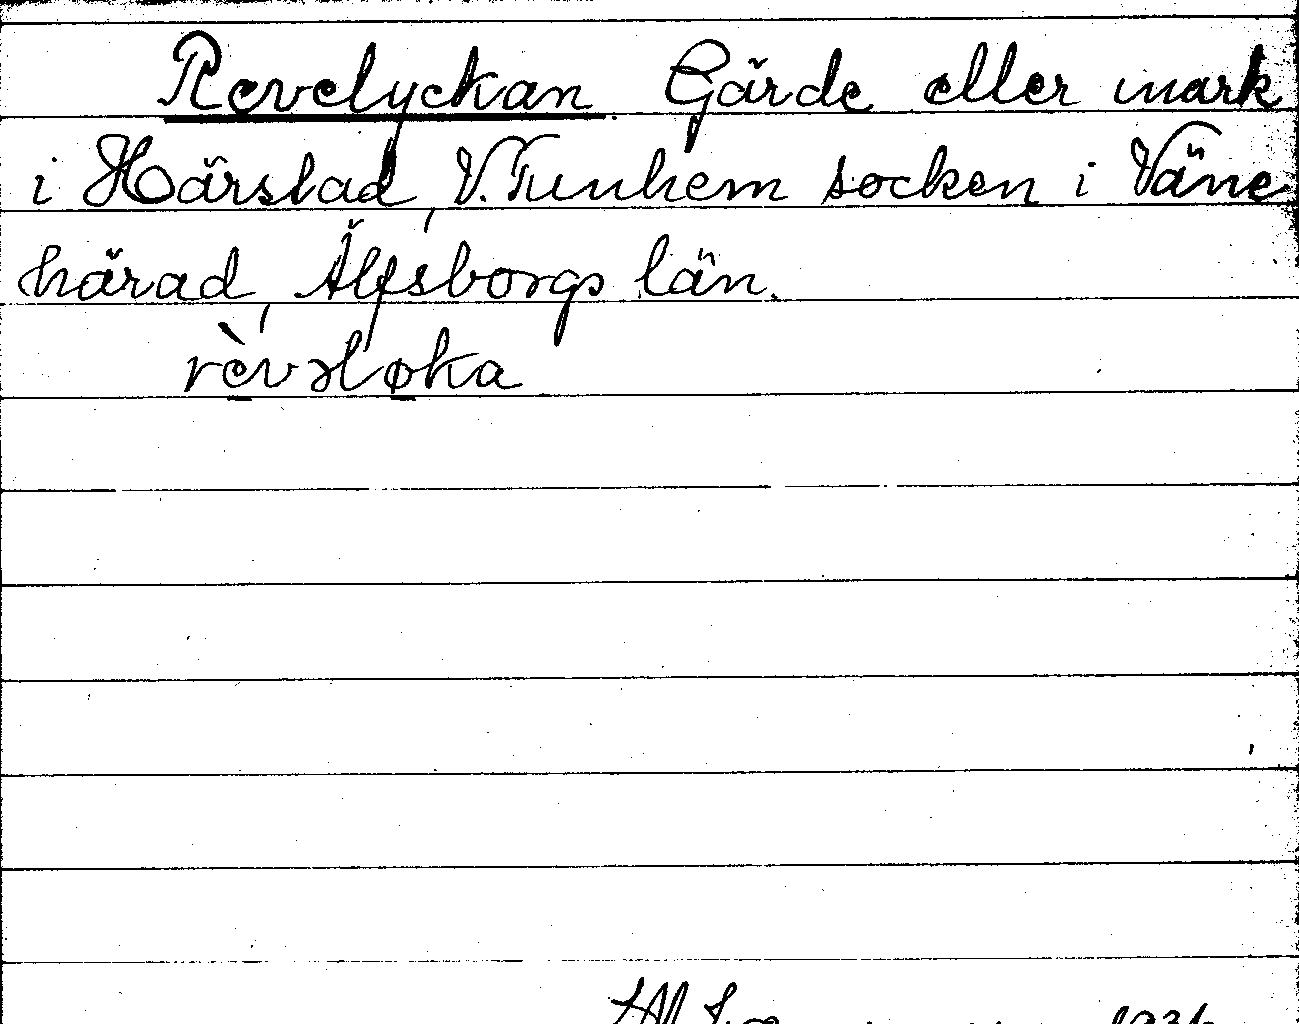 Revelyckan. Gärde eller mark
i Härstad, V. Tunhem socken i Väne
härad, Älfsborgs län.
rèvəløka